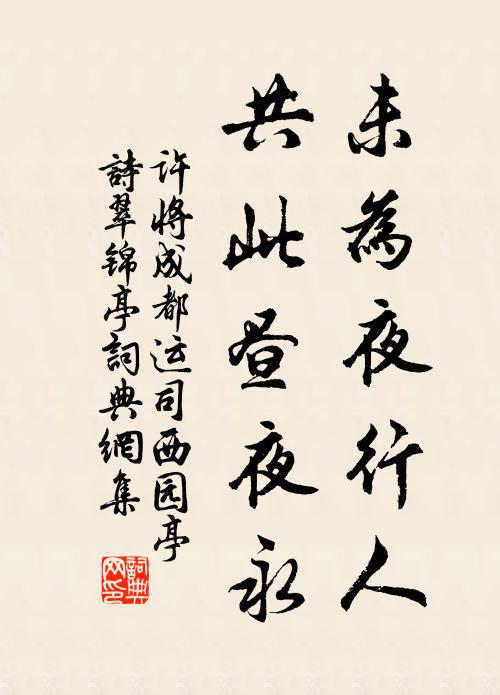 未為夜行人
共此昼夜永
许将成都运司西园亭
詩翠锦亭詞典網集
詞典
网印